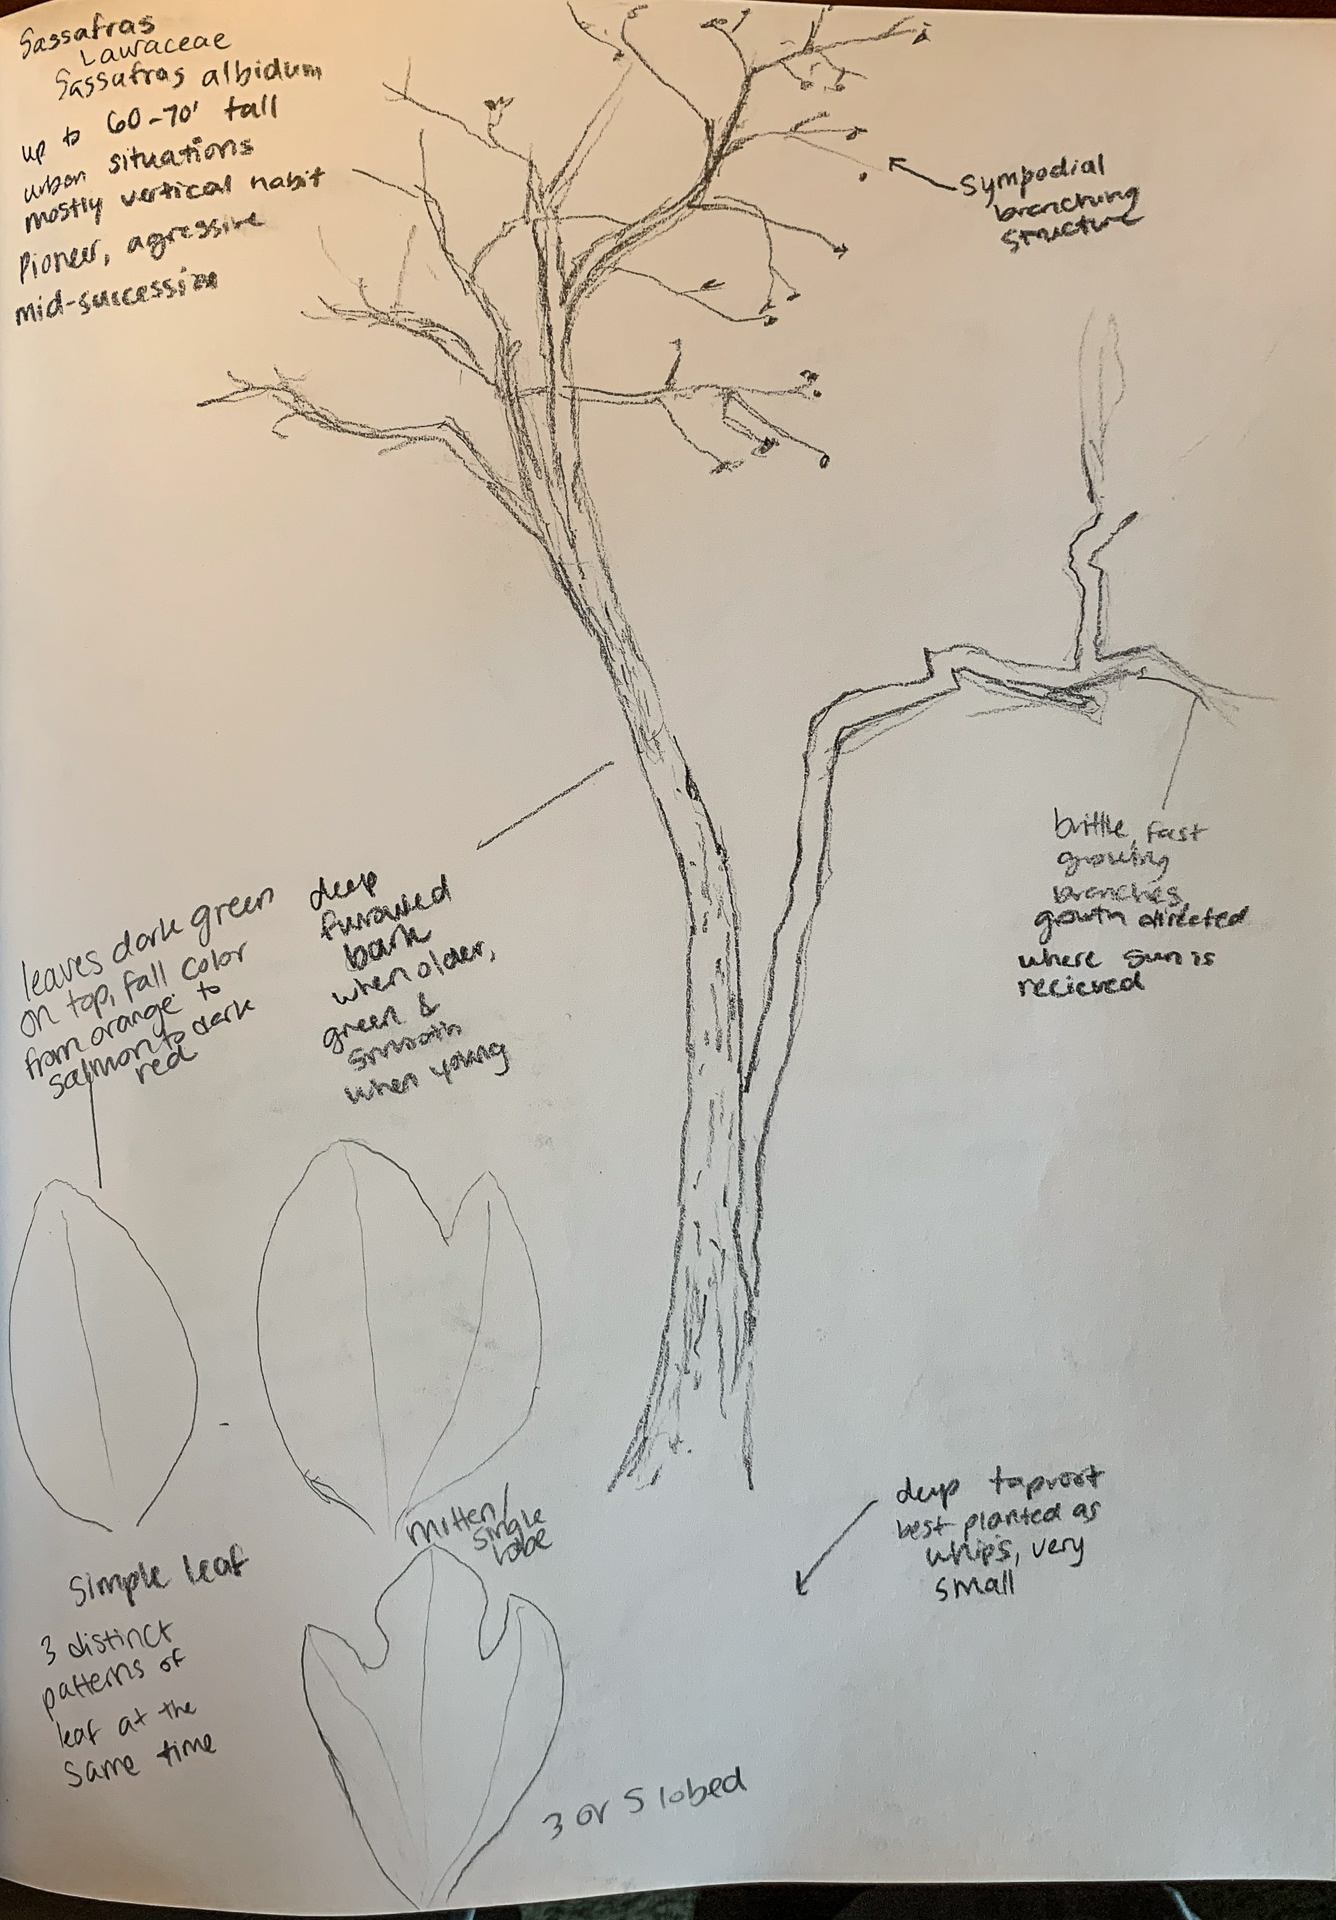 Sassafras
Lauraceae
Sassafras albidum
up to 60-70' tall
urban situations
mostly vertical habit
Pioneer, agressive
mid-succession
Sympodial
branching
structure
brittle, fast
growing
branches,
growth directed
where sun is
recieved
leaves dark green
on top, fall color
from orange to
salmon to dark
red
deep
furrowed
bark
when older,
green &
smooth
when young
mitten/
single
lobe
deep taproot
best planted as
whips, very
small
Simple leaf
3 distinct
patterns of
leaf at the
same time
3 or 5 lobed